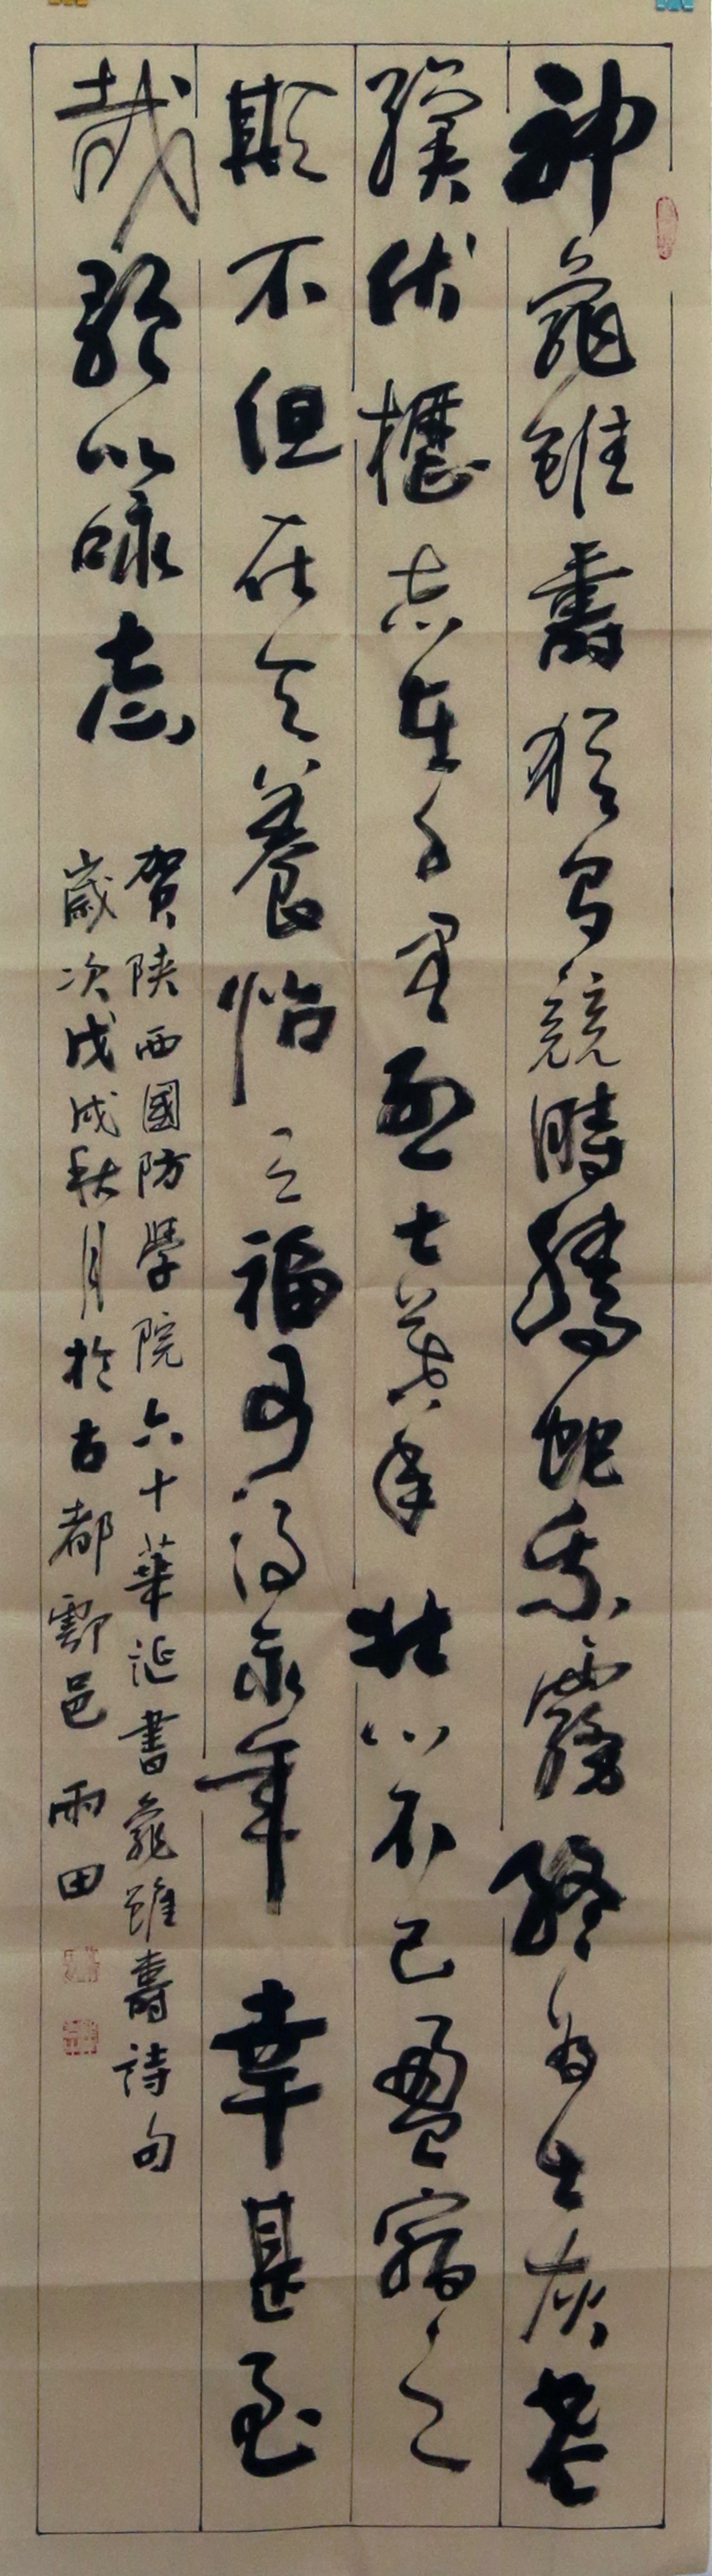 神龜雖壽猶有競時騰蛇乘霧終為土灰老
驥伏櫪志在千里烈士暮年壯心不已盈宿之
期不但在天養怡之福可得永年 幸甚至
哉歌以咏志
賀陕西國防學院六十華誕書龜雖壽詩句
歲次戊戌秋月於古都鄠邑 雨田